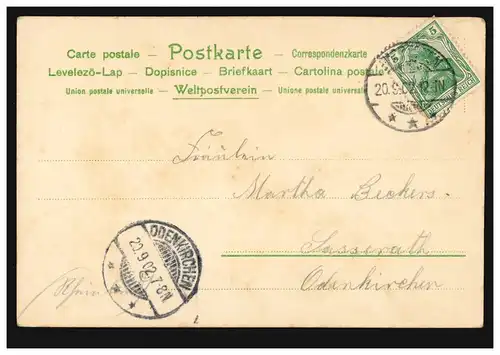 Carte postale - Postkarte - Correspondenzkarte
Levelezö-Lap - Dopisnice - Briefkaart - Cartolina postale
Union postale universelle - Weltpostverein - Unione postale universale
5
20.9.02.12-1N
Fräulein
Martha Beckers
Sasserath
Odenkirchen
Rhein
ODENKIRCHEN
20.9.02.7-8N